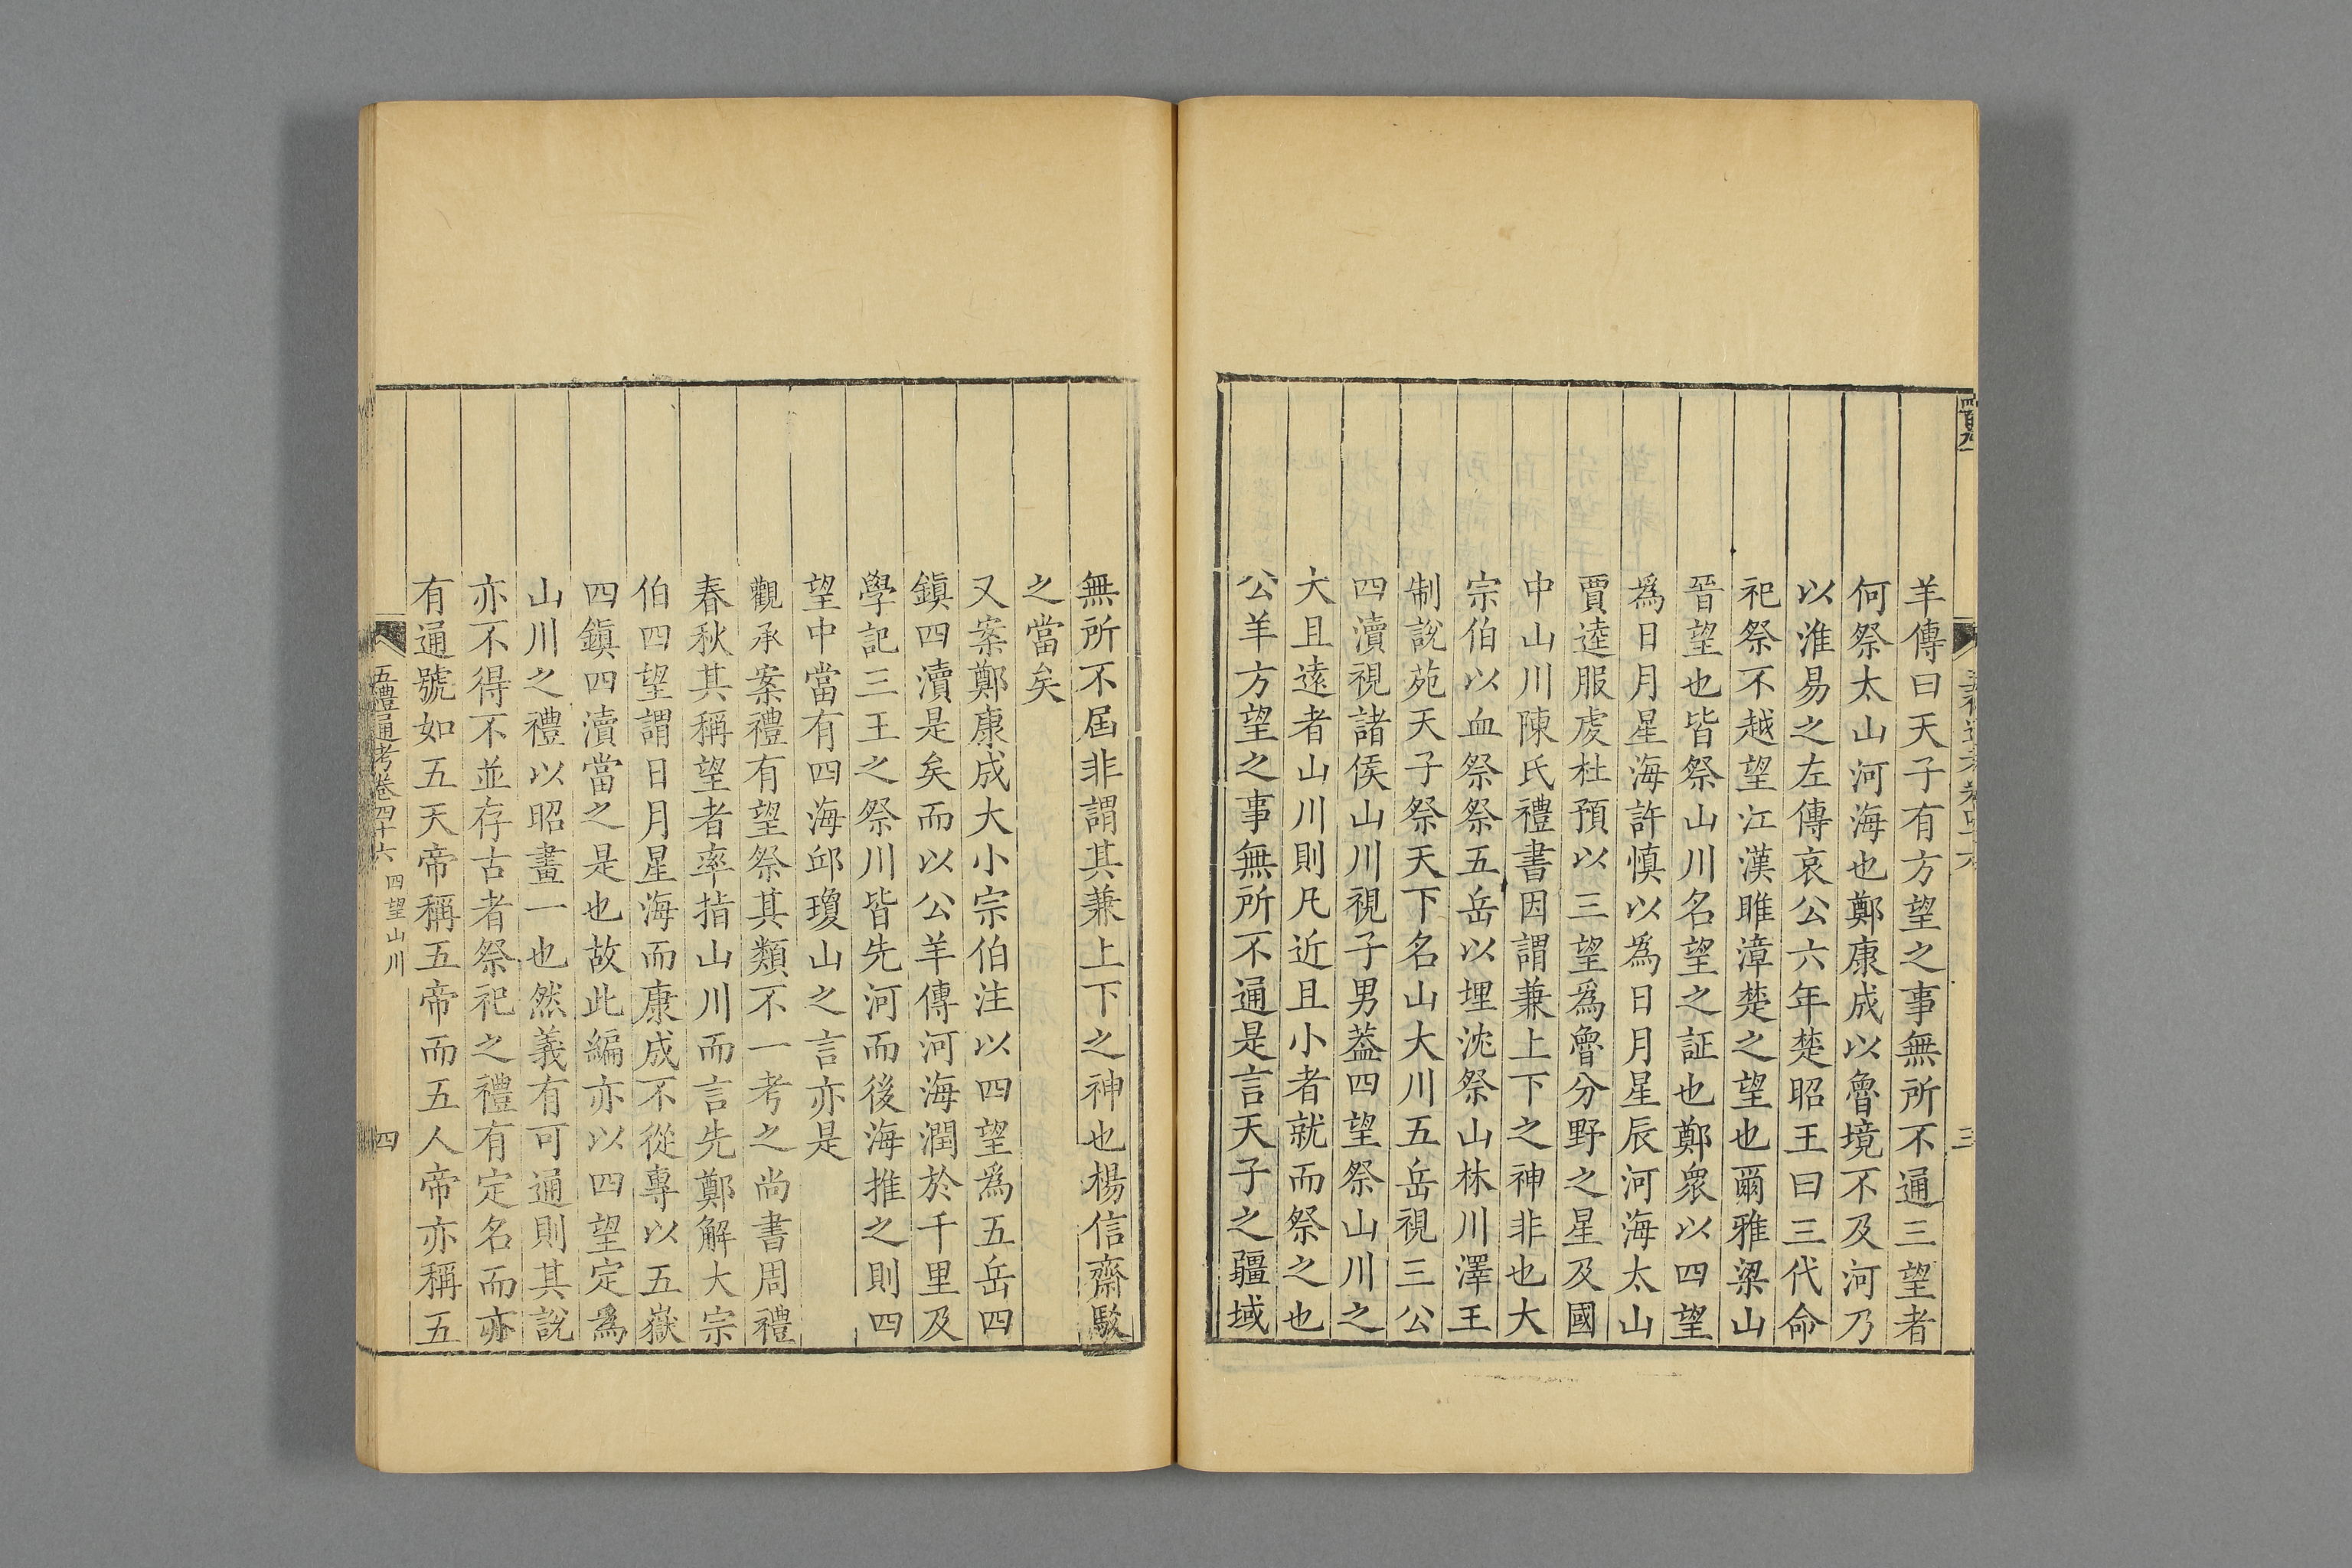 羊傳曰天子有方望之事無所不通三望者
何祭太山河海也鄭康成以魯境不及河乃
以淮易之左傳哀公六年楚昭王曰三代命
祀祭不越望江漢睢漳楚之望也爾雅梁山
晉望也皆祭山川名望之証也鄭衆以四望
爲日月星海許慎以爲日月星辰河海太山
賈逵服虔杜預以三望爲魯分野之星及國
中山川陳氏禮書因謂兼上下之神非也大
宗伯以血祭祭五岳以埋沈祭山林川澤王
制說苑天子祭天下名山大川五岳視三公
四瀆視諸侯山川視子男蓋四望祭山川之
大且遠者山川則凡近且小者就而祭之也
公羊方望之事無所不通是言天子之疆域
無所不屆非謂其兼上下之神也楊信齋駁
之當矣
又案鄭康成大小宗伯注以四望爲五岳四
鎮四瀆是矣而以公羊傳河海潤於千里及
學記三王之祭川皆先河而後海推之則四
望中當有四海邱瓊山之言亦是
觀承案禮有望祭其類不一考之尚書周禮
春秋其稱望者率指山川而言先鄭解大宗
伯四望謂日月星海而康成不從專以五嶽
四鎮四瀆當之是也故此編亦以四望定爲
山川之禮以昭畫一也然義有可通則其說
亦不得不並存古者祭祀之禮有定名而亦
有通號如五天帝稱五帝而五人帝亦稱五
五禮通考卷四十六 四望山川 四